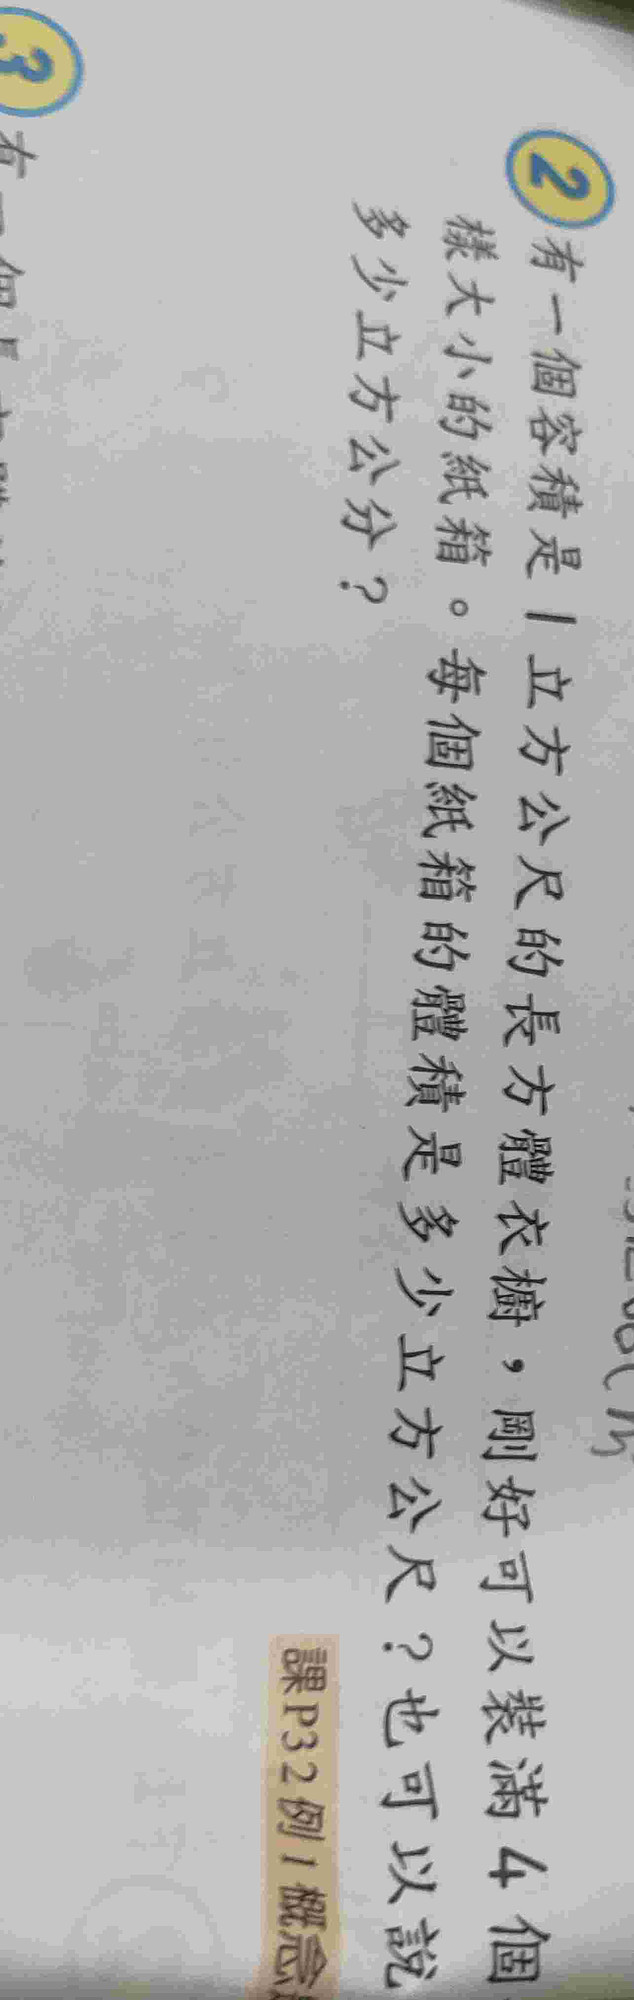 2 有一個容積是1立方公尺的長方體衣櫥，剛好可以裝滿4個
樣大小的紙箱。每個紙箱的體積是多少立方公尺？也可以說
多少立方公分？
課P32例1概念
3 有一個